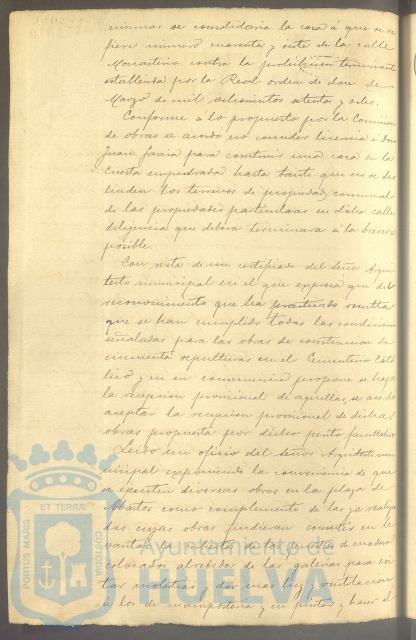 se consolidaria la casa á que se re
fiere número cuarenta y siete de la calle
Monasterio contra la prohibición terminante
establecida por la Real orden de doce de
Marzo de mil ochocientos setenta y ocho.
Conforme a lo propuesto por la Comision
de obras se acordo no conceder licencia á Don
Juan Garcia para construir una casa en la
Cuesta empedrada hasta tanto que no se des
linden los terrenos de propiedad comunal
de las propiedades particulares en dicha calle
diligencia que debera terminarse á la brevedad
posible.
Con vista de un certificado del Señor Arqui
tecto municipal en el que expresa que del
reconocimiento que ha practicado resulta
que se han cumplido todas las condiciones
señaladas para las obras de construccion de
cincuenta sepulturas en el Cementerio Cató
lico y en su consecuencia propone se haga
la recepcion provisional de aquellas, se acordo
aceptar la recepcion provisional de dichas
obras propuesta por dicho perito facultativo
Leido un oficio del Señor Arquitecto mu
nicipal exponiendo la conveniencia de que
se ejecuten diversas obras en la plaza de
Abastos como complemento de las ya realiza
das cuyas obras pudieran consistir en le
vantar la cubierta de los puestos de madera
colocados alrededor de las galerias para evi
tar molestias y dar mas luz y ventilacion
a los de mamposteria y en pintar y hacer el
PORTUS MARIS ET TERRÆ CUSTODIA
Ayuntamiento de
HUELVA